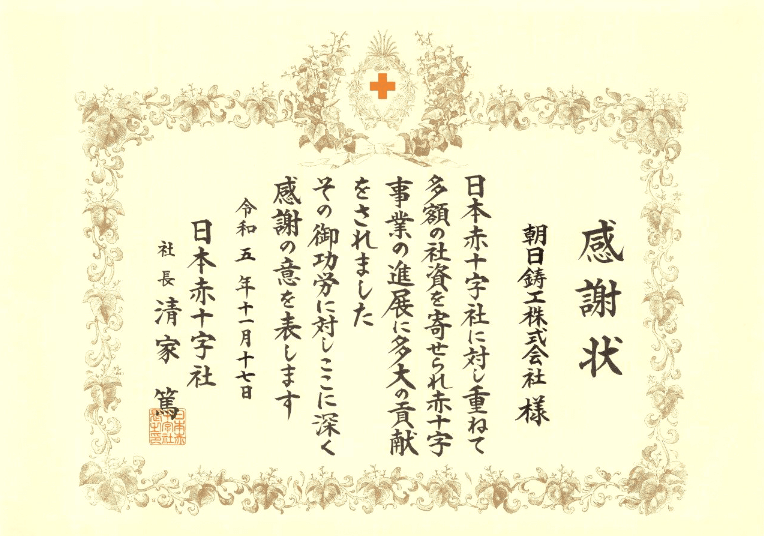 感謝状
朝日鋳工株式会社 様
日本赤十字社に対し重ねて
多額の社資を寄せられ赤十字
事業の進展に多大の貢献
をされました
その御功労に対しここに深く
感謝の意を表します
令和五年十一月十七日
日本赤十字社
社長 清家 篤